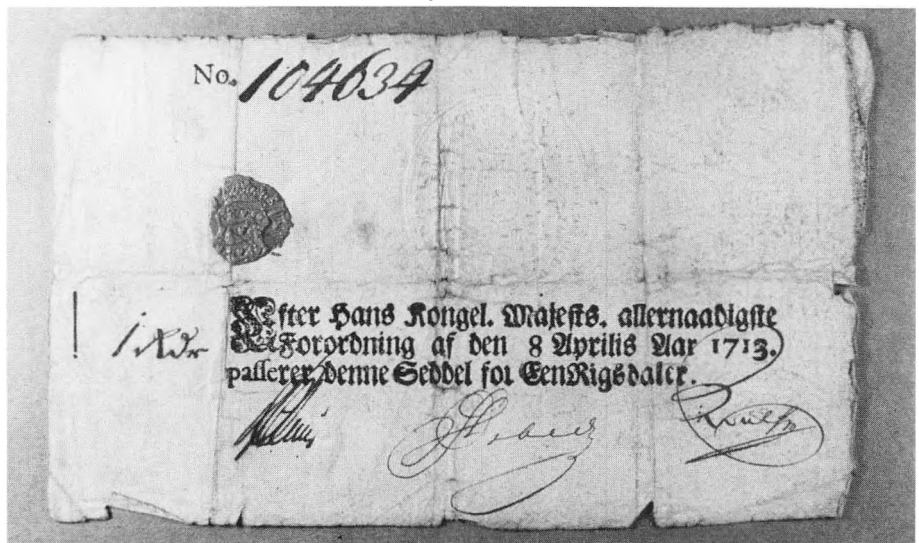 No. 104634
1 Rdr
Efter Hans Kongel. Majests. allernaadigste
Forordning af den 8 Aprilis Aar 1713.
passerer denne Seddel for Een Rigsdaler.